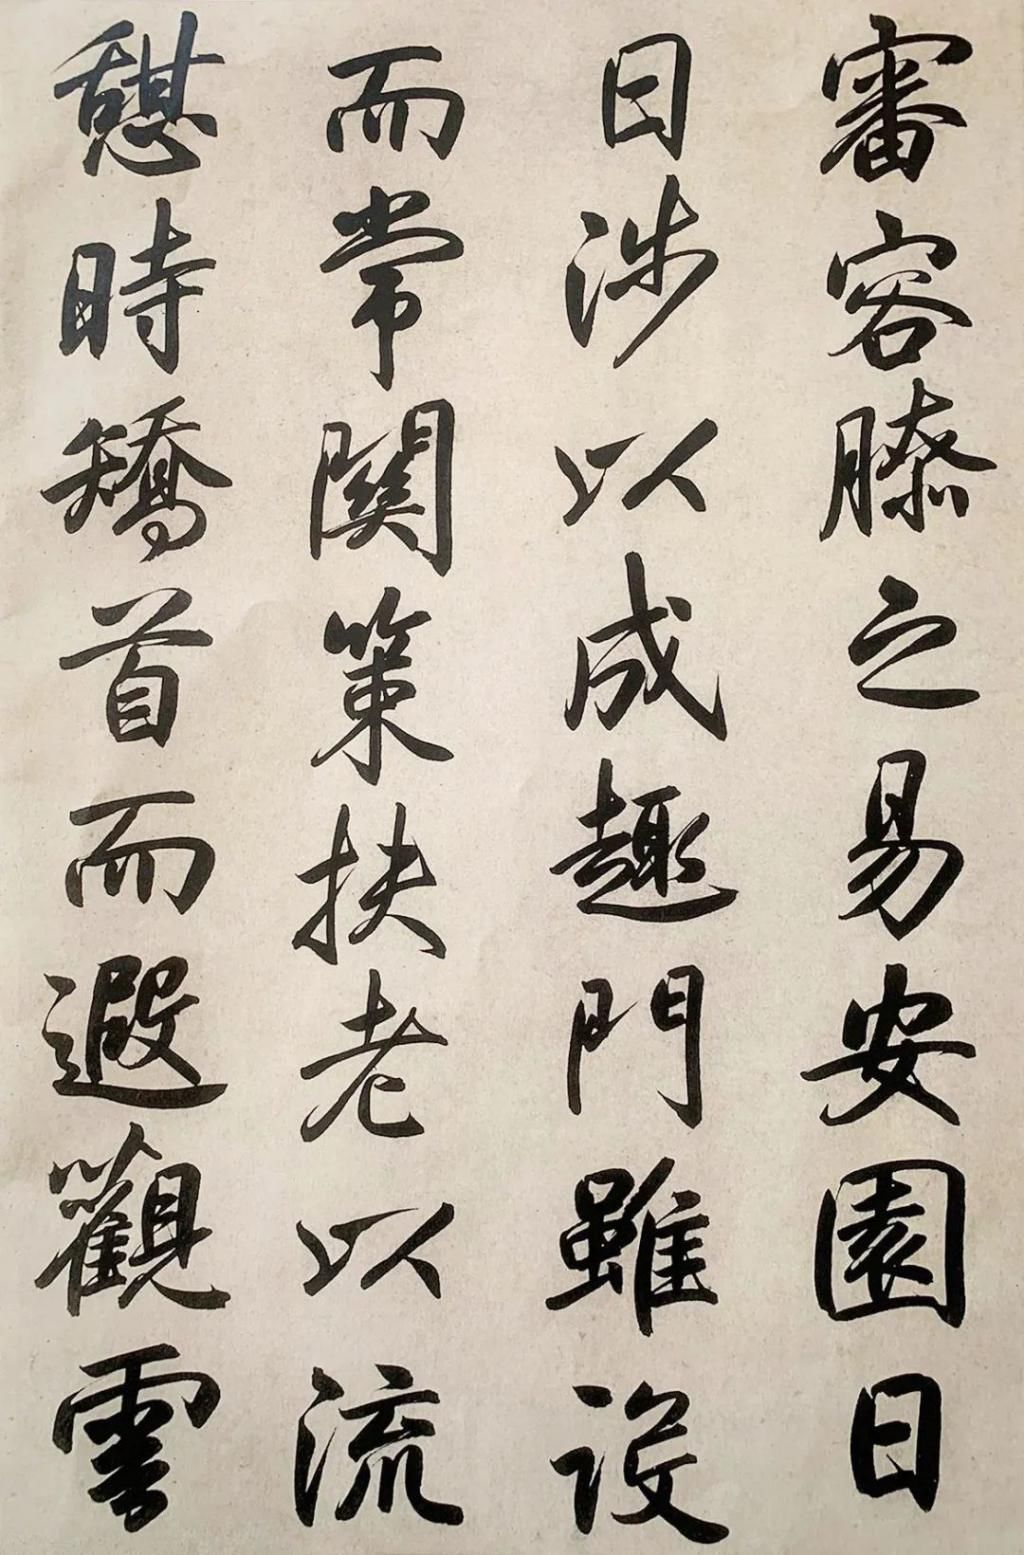 審容膝之易安園日
日涉以成趣門雖設
而常關策扶老以流
憩時矯首而遐觀雲